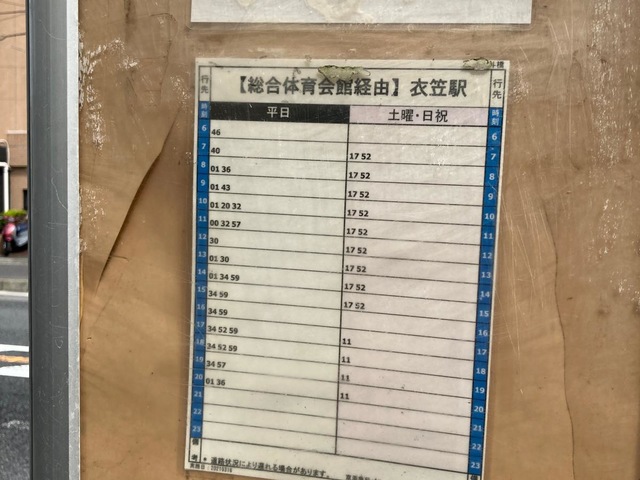 行先 【総合体育会館経由】 衣笠駅 行先
時刻 平日 土曜・日祝 時刻
6 46 6
7 40 17 52 7
8 01 36 17 52 8
9 01 43 17 52 9
10 01 20 32 17 52 10
11 00 32 57 17 52 11
12 30 17 52 12
13 01 30 17 52 13
14 01 34 59 17 52 14
15 34 59 17 52 15
16 34 59 16
17 34 52 59 11 17
18 34 52 59 11 18
19 34 57 11 19
20 01 36 11 20
21 21
22 22
23 23
備考 * 道路状況により遅れる場合があります。